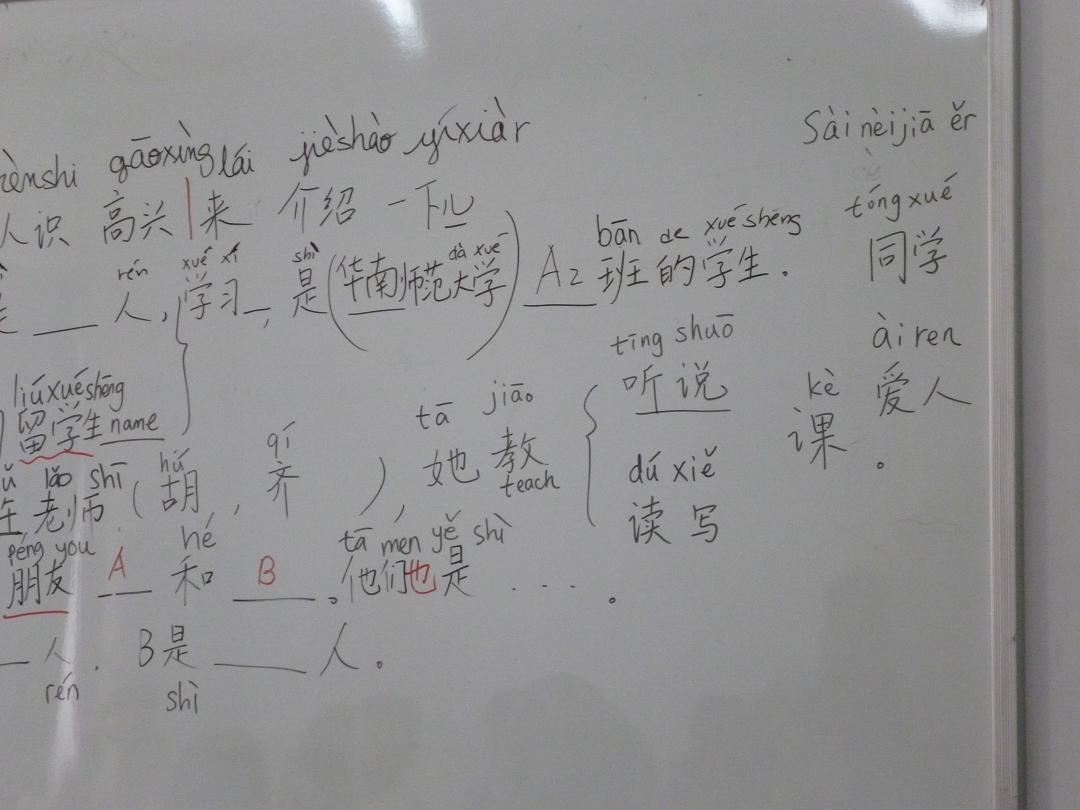 rènshi gāoxìng lái jièshào yíxiàr Sàinèijiā ěr
人识 高兴 | 来 介绍 一下儿 tóngxué
rén xué xí shì dà xué bān de xuéshēng 同学
是 ___ 人, 学习_, 是 (华南师范大学) A2 班 的 学生.
tīng shuō àiren
liúxuéshēng 听 说 kè 爱人
留学生 name tā jiāo 课。
lǎo shī hú qí 她 教 dú xiě
老师 (胡, 齐 ), teach 读 写
péng you hé tā mén yě shì
朋友 A 和 B 。他们也是 ....。
__ 人. B是 ____ 人。
rén shì